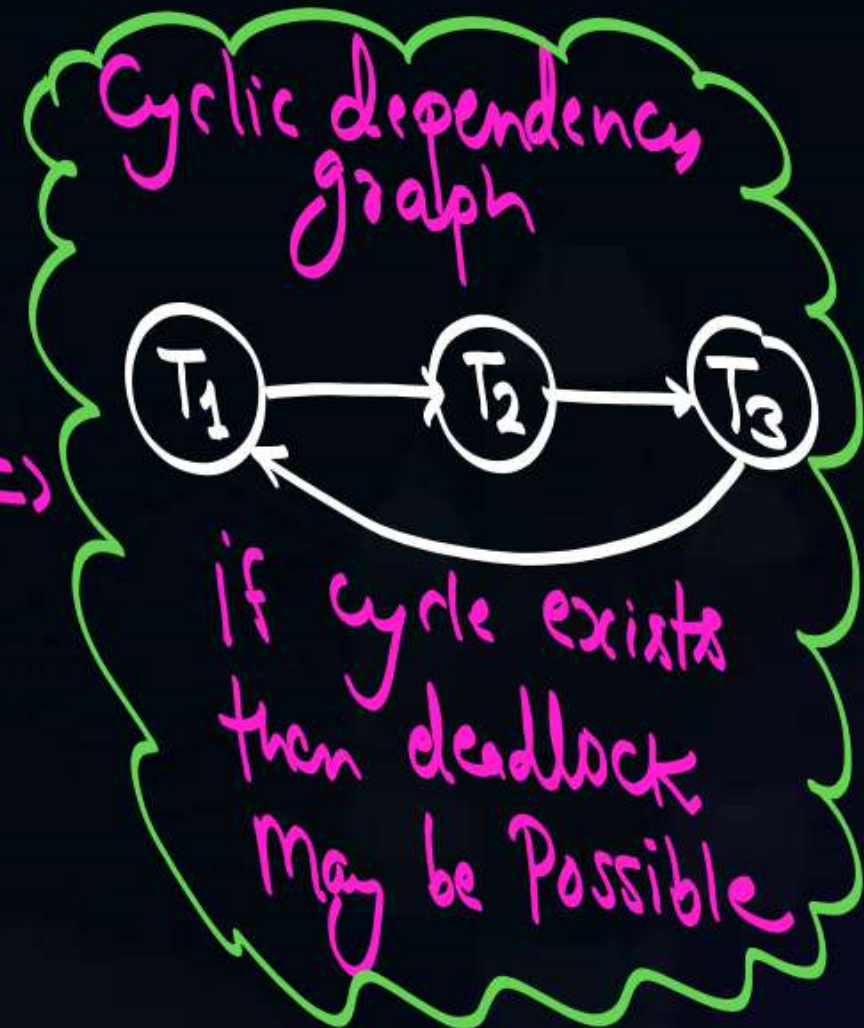 Cyclic dependency
graph
T1 T2 T3
=>
if cycle exists
than deadlock
May be Possible